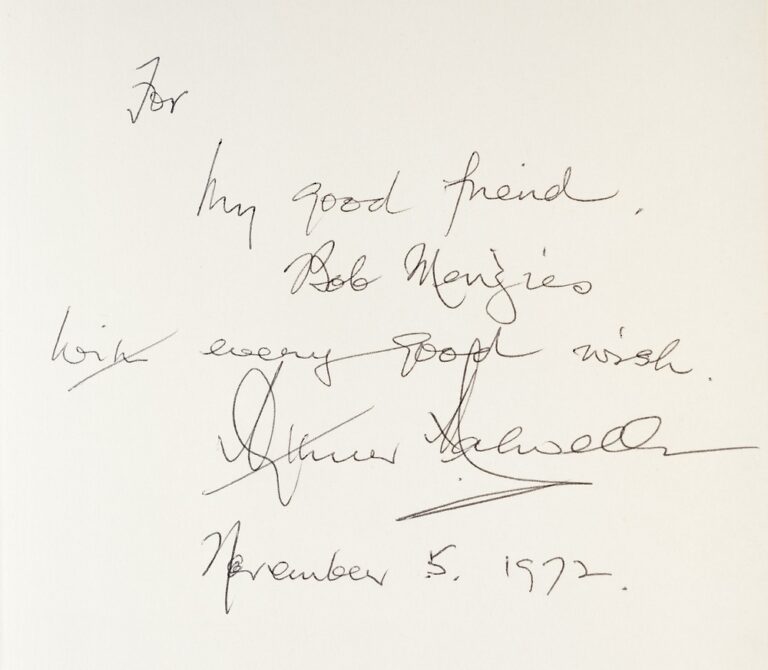 For
My good friend.
Bob Menzies
With every good wish.
Arthur Calwell
November 5. 1972.